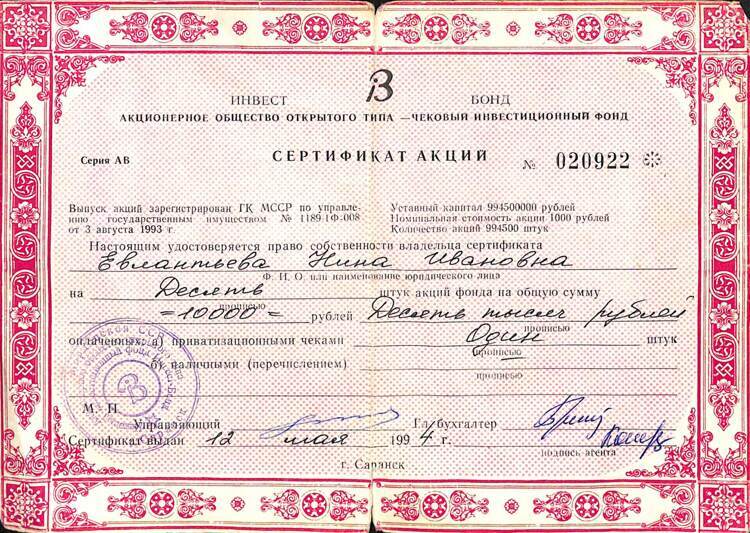 ИНВЕСТ В БОНД
АКЦИОНЕРНОЕ ОБЩЕСТВО ОТКРЫТОГО ТИПА — ЧЕКОВЫЙ ИНВЕСТИЦИОННЫЙ ФОНД
Серия АВ СЕРТИФИКАТ АКЦИЙ № 020922
Выпуск акций зарегистрирован ГК МССР по управле-
нию государственным имуществом № 1189-1Ф-008
от 3 августа 1993 г.
Уставный капитал 994500000 рублей
Номинальная стоимость акции 1000 рублей
Количество акций 994500 штук
Настоящим удостоверяется право собственности владельца сертификата
Евлантьева Нина Ивановна
Ф. И. О. или наименование юридического лица
на Десять штук акций фонда на общую сумму
прописью
=10000= рублей Десять тысяч рублей
прописью
оплаченных: а) приватизационными чеками Один штук
прописью
б) наличными (перечислением)
прописью
М. П.
Управляющий Гл. бухгалтер
Сертификат выдан 12 мая 1994 г.
подпись агента
г. Саранск